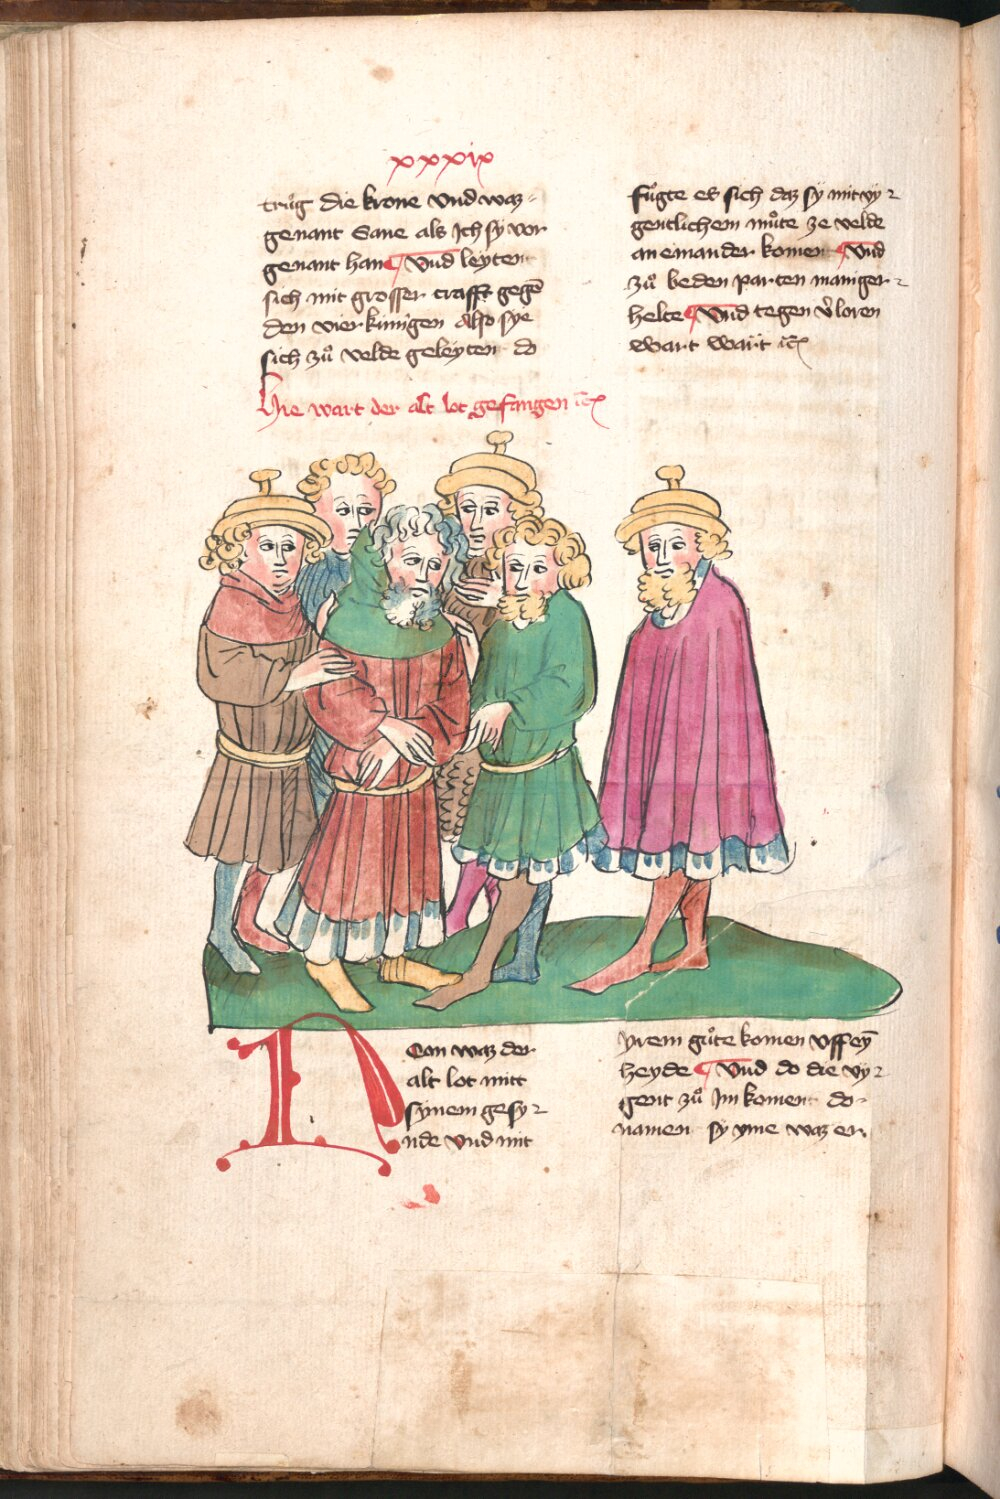 xxxix
trůg die krone Vnd waz
genant Sane als Jch sy vor
genant han Vnd leyten
sich mit grosser crafft gegē
den vier kunigen Also sye
sich zů velde geleyten do
fůgte es sich daz sy mit vy
gentlichem můte ze velde
an einander komen Vnd
zů beden parten maniger
helte Vnd tegen v̓loren
wart
Hie wart der alt lot gefangen ꝛc
NOon waz der
alt lot mitt
synem gesy
nde Vnd mit
yrem gůte komen vff eȳ
heyde Vnd do die vy
gent zů Jm komen do
namen sy yme waz er